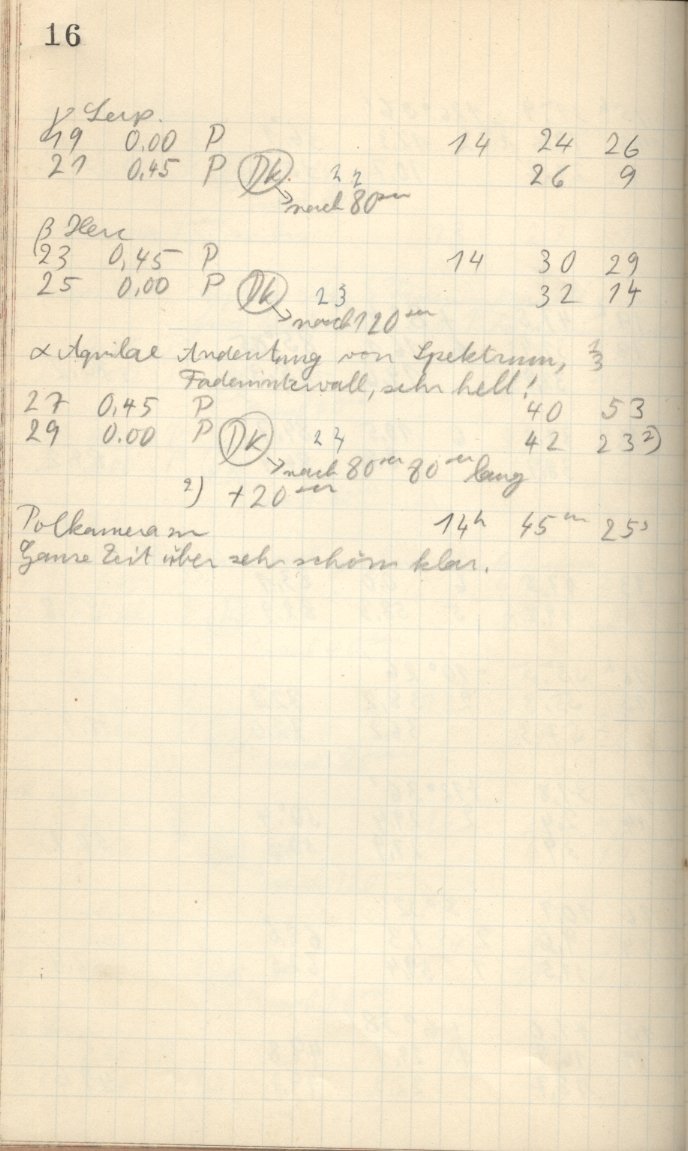 16
γ Serp.
19 0.00 P 14 24 26
21 0.45 P Dk 22 26 9
nach 80 sec
β Herc
23 0,45 P 14 30 29
25 0.00 P Dk 23 32 14
nach 120 sec
α Aquilae Andeutung von Spektrum, 1/3
Fadenintervall, sehr hell!
27 0.45 P 40 53
29 0.00 P Dk 24 42 23 2)
nach 80 sec 80 sec lang
2) +20 sec
Polkamera zu 14h 45m 25s
Ganze Zeit über sehr schön klar.